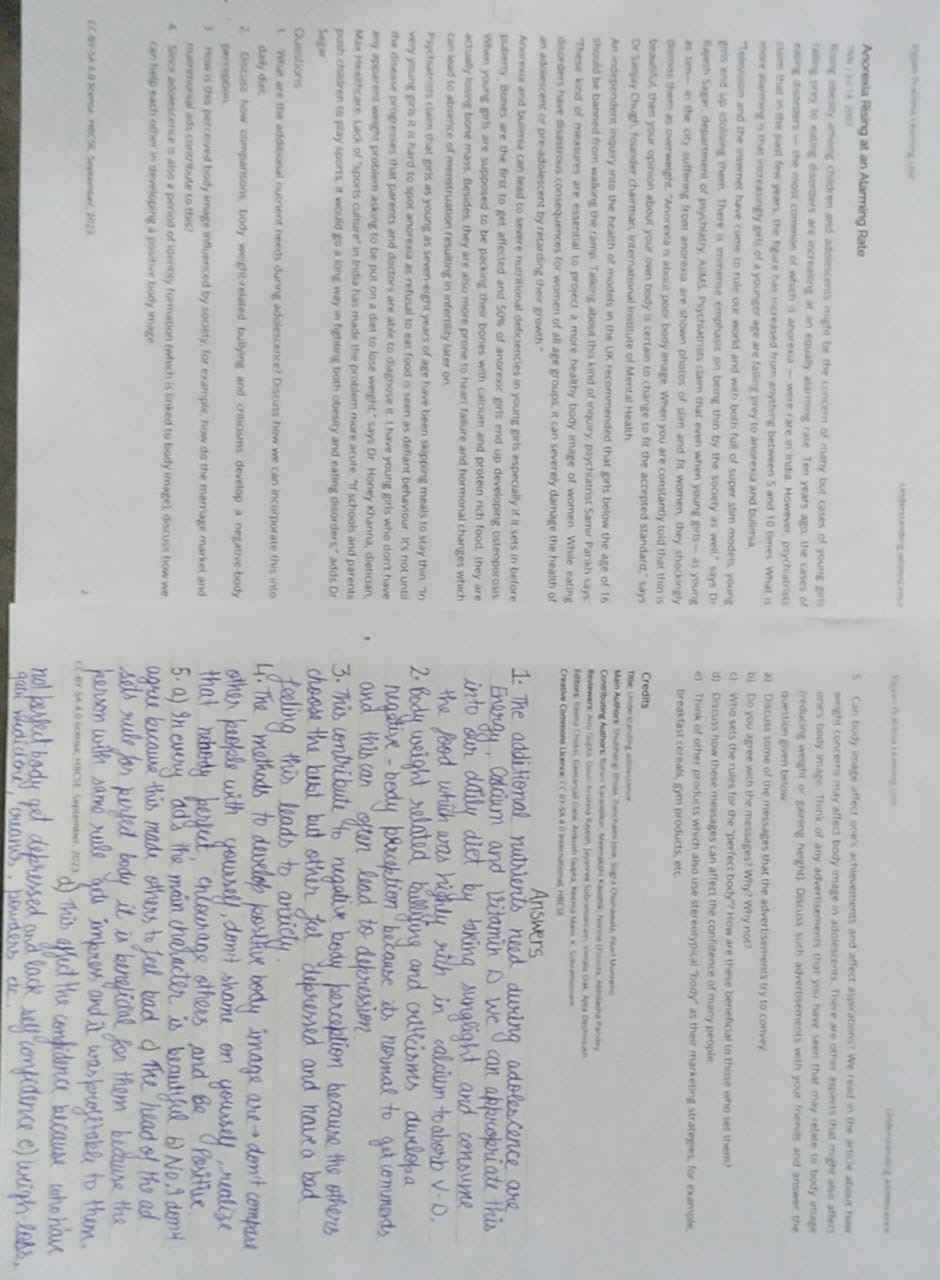 Vigyan Pratibha Learning Unit
Understanding adolescence
Anorexia Rising at an Alarming Rate
Rising obesity among children and adolescents might be the concern of many but cases of young girls
falling prey to eating disorders are increasing at an equally alarming rate. Ten years ago, the cases of
eating disorders — the most common of which is anorexia — were rare in India. However, psychiatrists
claim that in the past few years, the figure has increased from anything between 5 and 10 times. What is
more alarming is that increasingly girls of a younger age are falling prey to anorexia and bulimia.
"Television and the internet have come to rule our world and with both full of super slim models, young
girls end up idolising them. There is immense emphasis on being thin by the society as well," says Dr
Rajesh Sagar, department of psychiatry, AIIMS. Psychiatrists claim that even when young girls— as young
as ten— in the city suffering from anorexia are shown photos of slim and fit women, they shockingly
dismiss them as overweight. "Anorexia is about poor body image. When you are constantly told that thin is
beautiful, then your opinion about your own body is certain to change to fit the accepted standard," says
Dr Sanjay Chugh, founder chairman, International Institute of Mental Health.
An independent inquiry into the health of models in the UK recommended that girls below the age of 16
should be banned from walking the ramp. Talking about this kind of inquiry, psychiatrist Samir Parikh says:
"These kind of measures are essential to project a more healthy body image of women. While eating
disorders have disastrous consequences for women of all age groups, it can severely damage the health of
an adolescent or pre-adolescent by retarding their growth."
Anorexia and bulimia can lead to severe nutritional deficiencies in young girls especially if it sets in before
puberty. Bones are the first to get affected and 50% of anorexic girls end up developing osteoporosis.
When young girls are supposed to be packing their bones with calcium and protein rich food, they are
actually losing bone mass. Besides, they are also more prone to heart failure and hormonal changes which
can lead to absence of menstruation resulting in infertility later on.
Psychiatrists claim that girls as young as seven-eight years of age have been skipping meals to stay thin. "In
very young girls it is hard to spot anorexia as refusal to eat food is seen as defiant behaviour. It's not until
the disease progresses that parents and doctors are able to diagnose it. I have young girls who don't have
any apparent weight problem asking to be put on a diet to lose weight," says Dr. Honey Khanna, dietician,
Max Healthcare. Lack of "sports culture" in India has made the problem more acute. "If schools and parents
push children to play sports, it would go a long way in fighting both obesity and eating disorders," adds Dr
Sagar
Questions
1. What are the additional nutrient needs during adolescence? Discuss how we can incorporate this into
daily diet.
2. Discuss how comparisons, body weight-related bullying and criticisms develop a negative-body
perception.
3. How is this perceived body image influenced by society, for example, how do the marriage market and
matrimonial ads contribute to this?
4. Since adolescence is also a period of identity formation (which is linked to body image), discuss how we
can help each other in developing a positive body image.
CC-BY-SA 4.0 license, HBCSE, September, 2023
2
Vigyan Pratibha Learning Unit
Understanding adolescence
5. Can body image affect one's achievements and affect aspirations? We read in the article about how
weight concerns may affect body image in adolescents. There are other aspects that might also affect
one's body image. Think of any advertisements that you have seen that may relate to body image
(reducing weight or gaining height). Discuss such advertisements with your friends and answer the
question given below.
a) Discuss some of the messages that the advertisements try to convey.
b) Do you agree with the messages? Why? Why not?
c) Who sets the rules for the "perfect body"? How are these beneficial to those who set them?
d) Discuss how these messages can affect the confidence of many people.
e) Think of other products which also use stereotypical "body" as their marketing strategies, for example,
breakfast cereals, gym products, etc.
Credits
Title: Understanding adolescence
Creative Commons Licence: CC BY-SA 4.0 International, HBCSE
Answers
1. The additional nutrients need during adolescence are
Energy, Calcium and vitamin D we can appropriate this
into our daily diet by taking sunglight and consume
the food which was highly rich in calcium to abord V-D.
2. Body weight related bullying and criticisms develop a
negative-body perception because its normal to get comments
and this can often lead to depression.
3. This contribute to negative body perception because the others
choose the best but other feel depressed and have a bad
feeling this leads to anxiety.
4. The methods to develop positive body image are → don't compare
other people with yourself, don't shame on yourself, realise
that nobody perfect, encourage others and Be Positive
5. a) In every ad's the main character is beautiful b) No I don't
agree because this made others to feel bad c) The head of the ad
sets rule for perfect body it is benefical for them because the
person with same rule gets impress and it was profitable to them.
CC-BY-SA 4.0 license, HBCSE, September, 2023
d) This affect the confidence because who have
not perfect body get depressed and lack self confidence e) weigh-loss,
gain medicine, creams, powders etc.